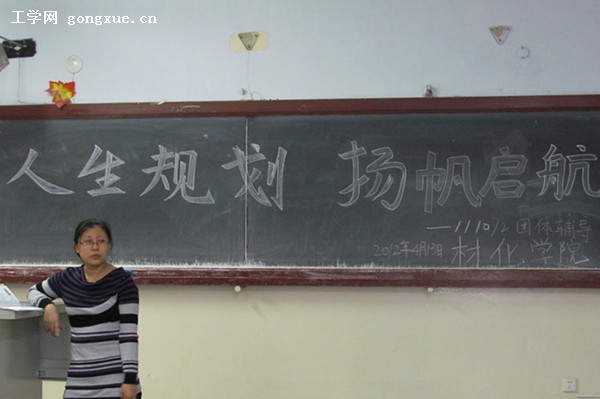 工学网 gongxue.cn
人生规划 扬帆启航
—111012团体辅导
2012年4月13日 材化学院